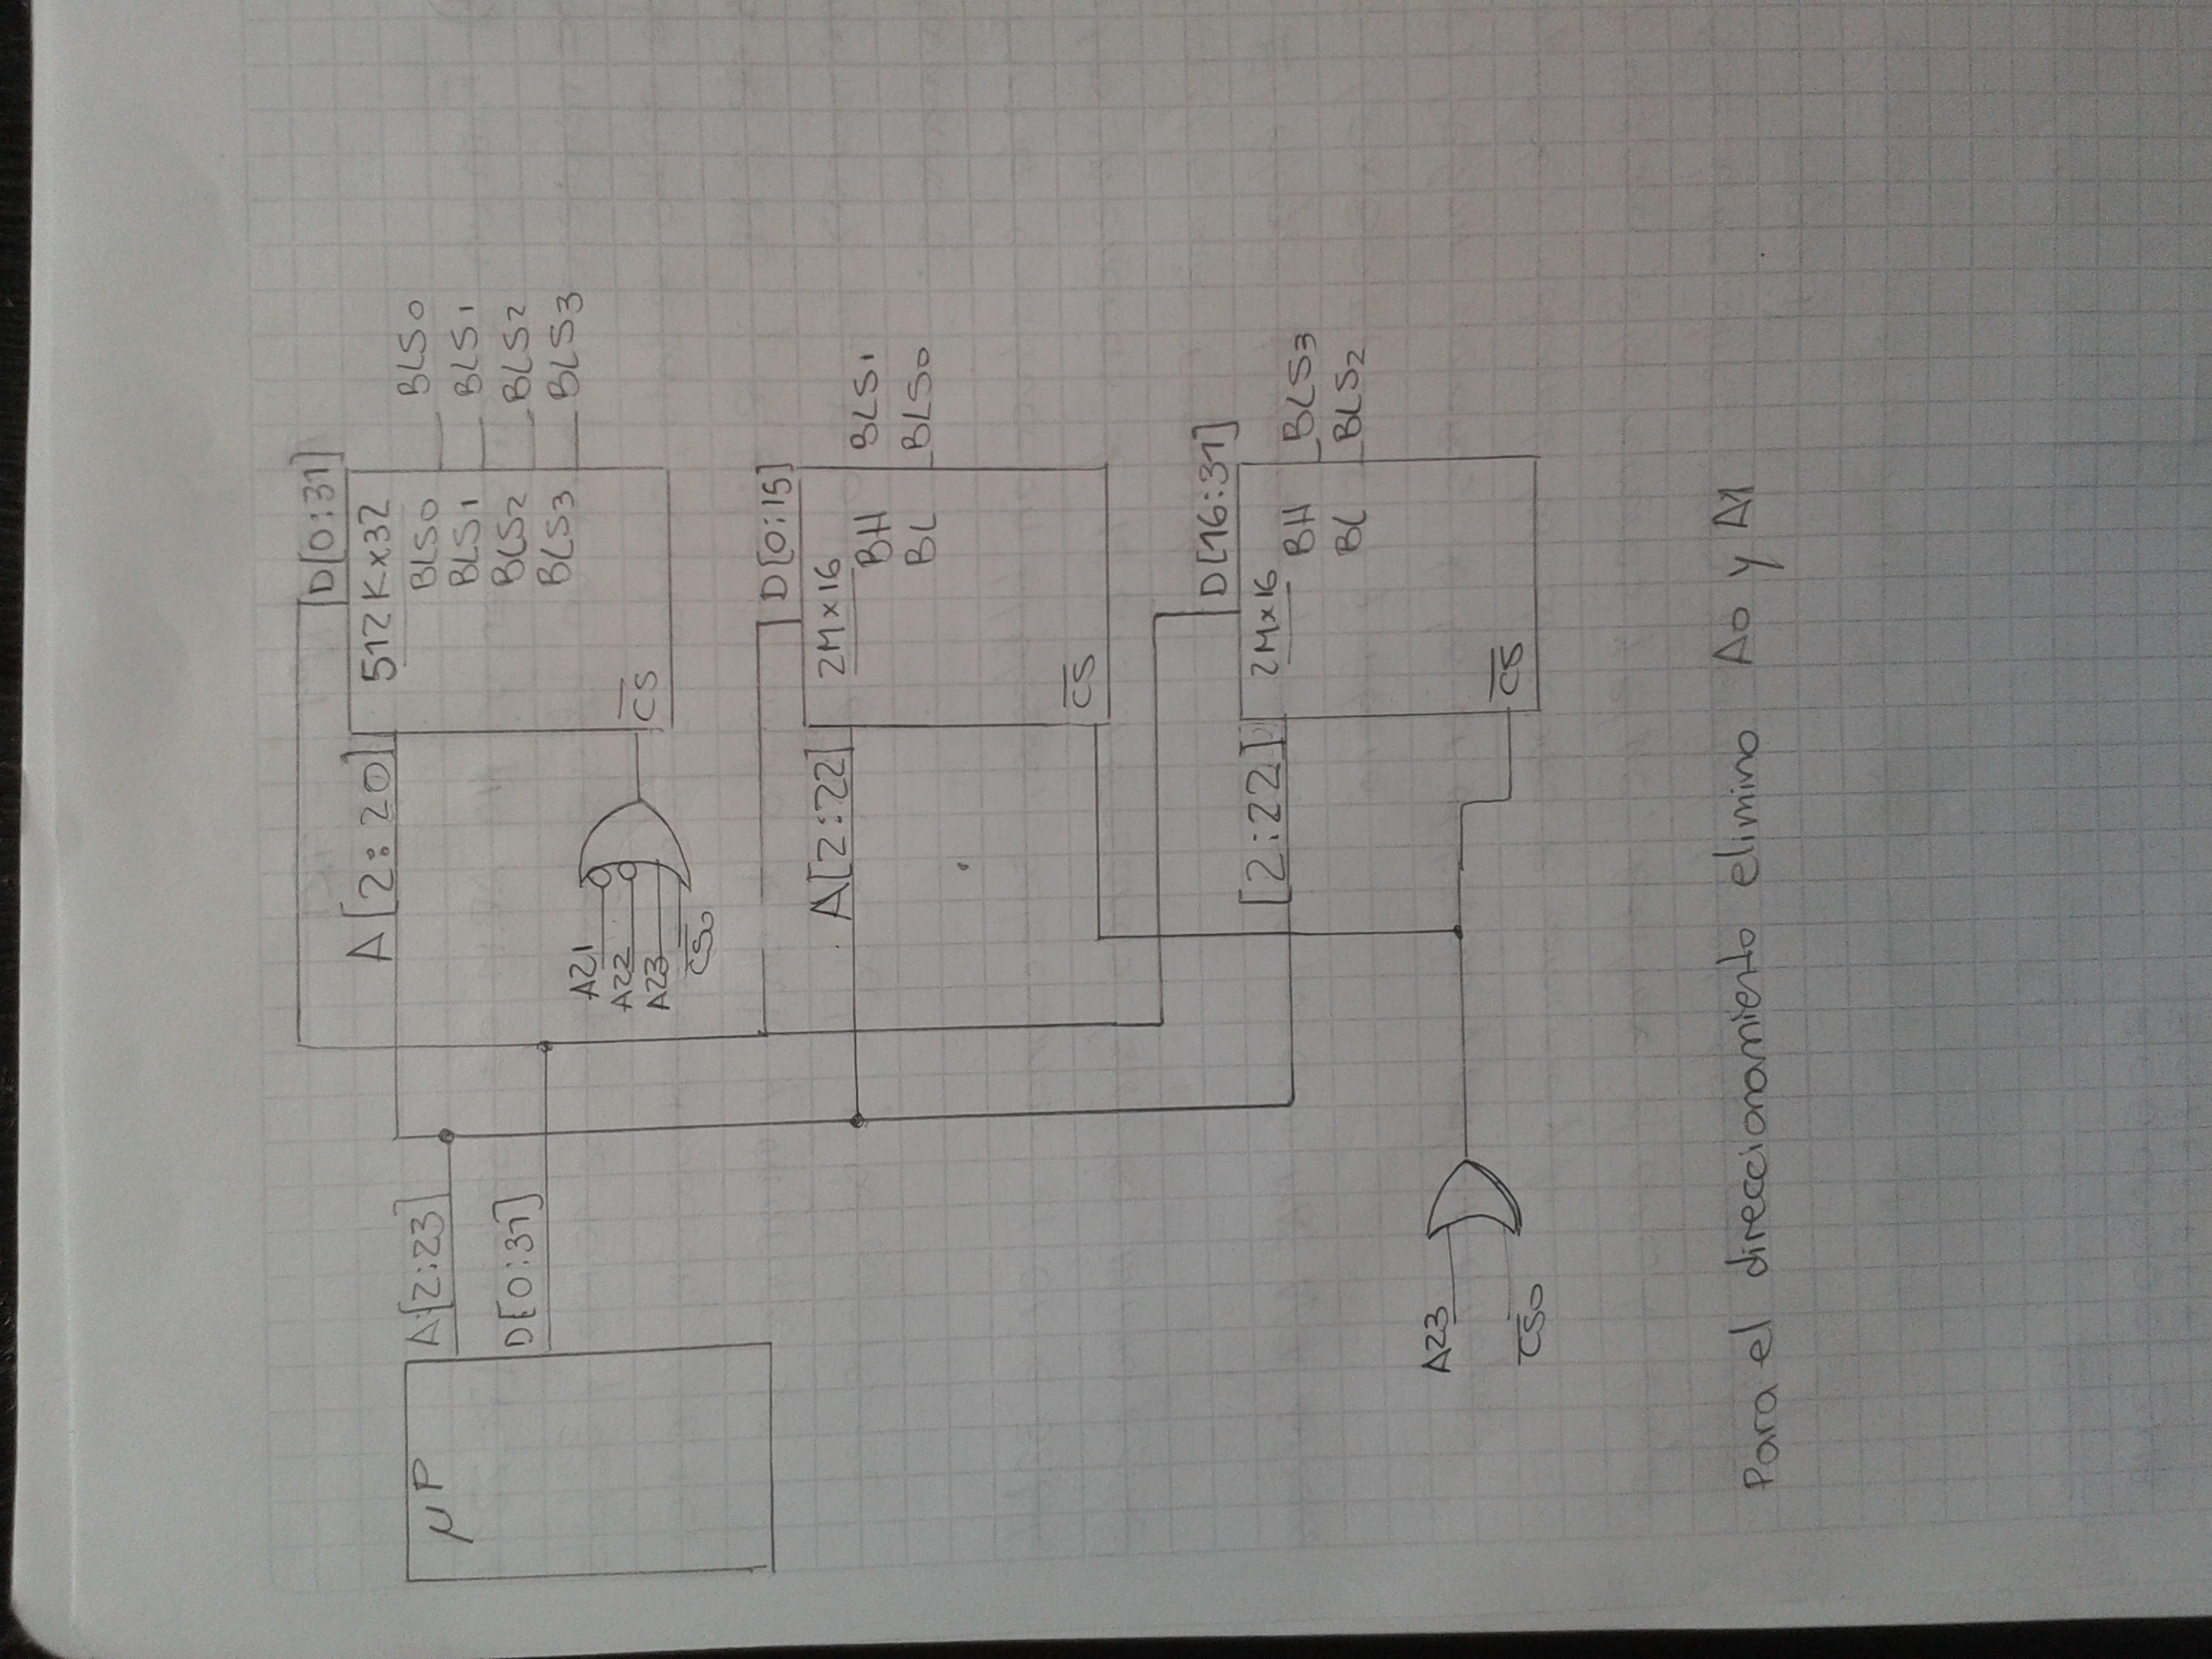 μP
A[2:23]
D[0:31]
A[2:20]
D[0:31]
512Kx32
BLS0 BLS0
BLS1 BLS1
BLS2 BLS2
BLS3 BLS3
CS
A21
A22
A23
CS0
A[2:22]
D[0:15]
2Mx16
BH BLS1
BL BLS0
CS
[2:22]
D[16:31]
2Mx16
BH BLS3
BL BLS2
CS
A23
CS0
Para el direccionamiento elimino A0 y A1